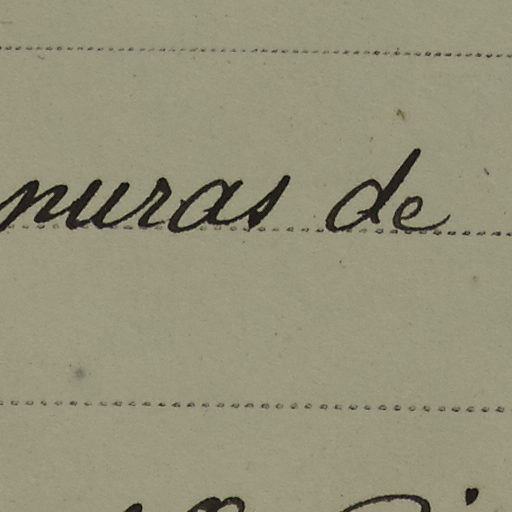 nuras de